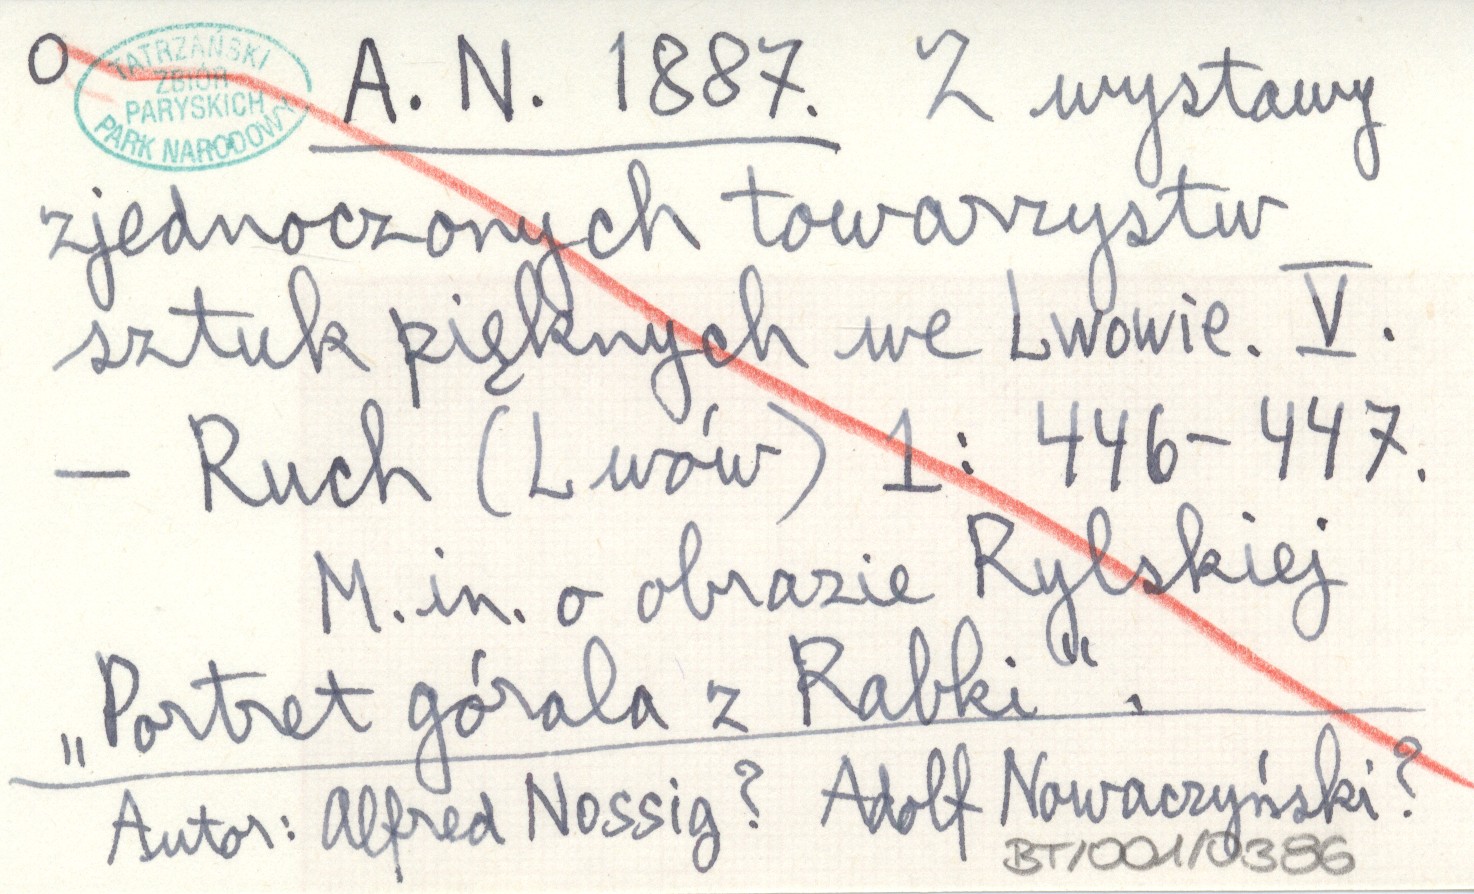 O
TATRZAŃSKI
ZBIÓR
PARYSKICH
PARK NARODOWY
A. N. 1887. Z wystawy
zjednoczonych towarzystw
sztuk pięknych we Lwowie. V.
— Ruch (Lwów) 1: 446–447.
M. in. o obrazie Rylskiej
„Portret górala z Rabki".
Autor: Alfred Nossig? Adolf Nowaczyński?
BT/001/0386